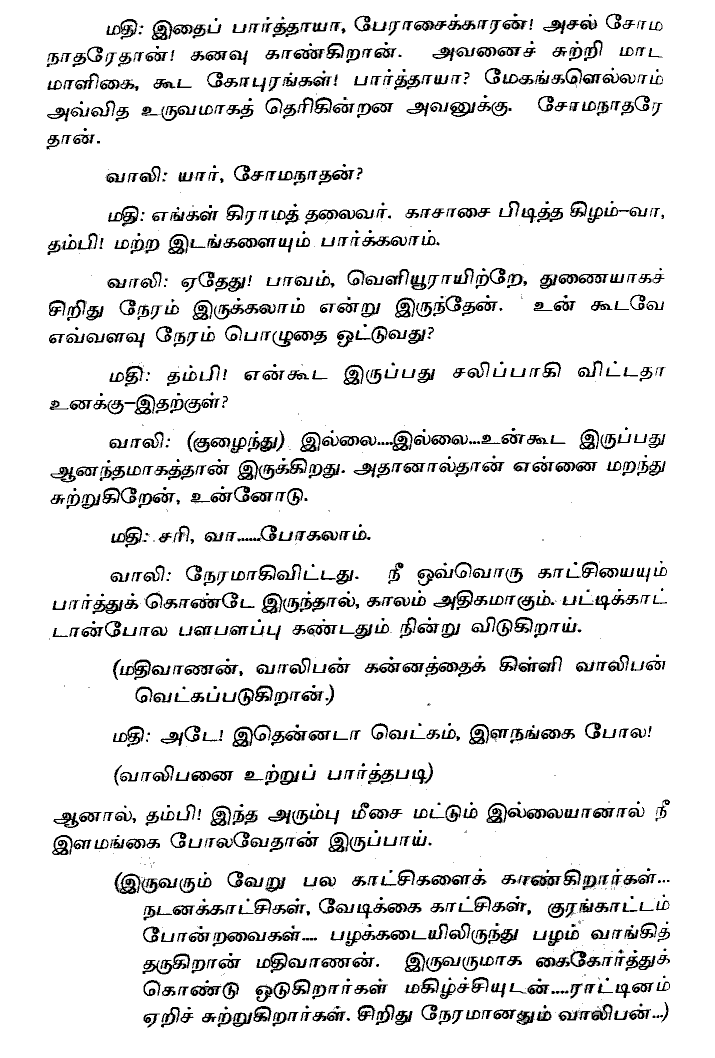 மதி: இதைப் பார்த்தாயா, பேராசைக்காரன்! அசல் சோம
நாதரேதான்! கனவு காண்கிறான். அவனைச் சுற்றி மாட
மாளிகை, கூட கோபுரங்கள்! பார்த்தாயா? மேகங்களெல்லாம்
அவ்வித உருவமாகத் தெரிகின்றன அவனுக்கு. சோமநாதரே
தான்.
வாலி: யார், சோமநாதன்?
மதி: எங்கள் கிராமத் தலைவர். காசாசை பிடித்த கிழம்-வா,
தம்பி! மற்ற இடங்களையும் பார்க்கலாம்.
வாலி: ஏதேது! பாவம், வெளியூராயிற்றே, துணையாகச்
சிறிது நேரம் இருக்கலாம் என்று இருந்தேன். உன் கூடவே
எவ்வளவு நேரம் பொழுதை ஒட்டுவது?
மதி: தம்பி! என்கூட இருப்பது சலிப்பாகி விட்டதா
உனக்கு-இதற்குள்?
வாலி: (குழைந்து) இல்லை....இல்லை...உன்கூட இருப்பது
ஆனந்தமாகத்தான் இருக்கிறது. அதானால்தான் என்னை மறந்து
சுற்றுகிறேன், உன்னோடு.
மதி: சரி, வா......போகலாம்.
வாலி: நேரமாகிவிட்டது. நீ ஒவ்வொரு காட்சியையும்
பார்த்துக் கொண்டே இருந்தால், காலம் அதிகமாகும். பட்டிக்காட்
டான்போல பளபளப்பு கண்டதும் நின்று விடுகிறாய்.
(மதிவாணன், வாலிபன் கன்னத்தைக் கிள்ளி வாலிபன்
வெட்கப்படுகிறான்.)
மதி: அடே! இதென்னடா வெட்கம், இளநங்கை போல!
(வாலிபனை உற்றுப் பார்த்தபடி)
ஆனால், தம்பி! இந்த அரும்பு மீசை மட்டும் இல்லையானால் நீ
இளமங்கை போலவேதான் இருப்பாய்.
(இருவரும் வேறு பல காட்சிகளைக் காண்கிறார்கள்...
நடனக்காட்சிகள், வேடிக்கை காட்சிகள், குரங்காட்டம்
போன்றவைகள்.... பழக்கடையிலிருந்து பழம் வாங்கித்
தருகிறான் மதிவாணன். இருவருமாக கைகோர்த்துக்
கொண்டு ஒடுகிறார்கள் மகிழ்ச்சியுடன்....ராட்டினம்
ஏறிச் சுற்றுகிறார்கள். சிறிது நேரமானதும் வாலிபன்...)